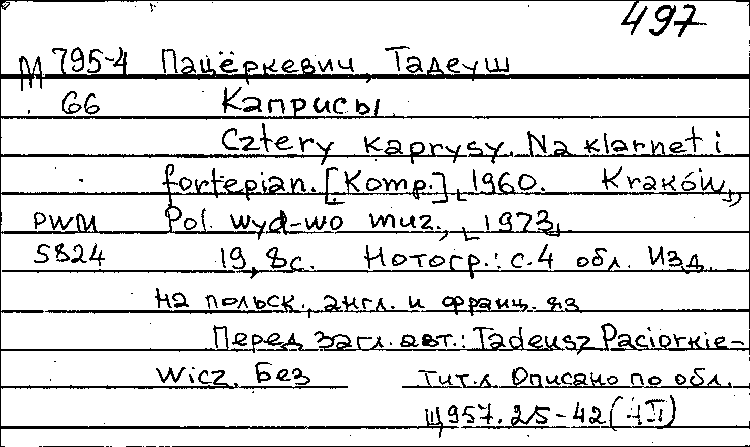 497
М 795-4 Пацёркевич, Тадеуш
66 Каприсы
Cztery kaprysy. Na klarnet i
fortepian. [Komp.] 1960. Kraków,
PWM Pol. wyd-wo muz., 1973.
5824 19, 8с. Нотогр.: с.4 обл. Изд.
на польск., англ. и франц. яз
Перед загл. авт.: Tadeusz Paciorkie-
wicz. Без тит.л. Описано по обл.
Щ957.2/5-42(4П)